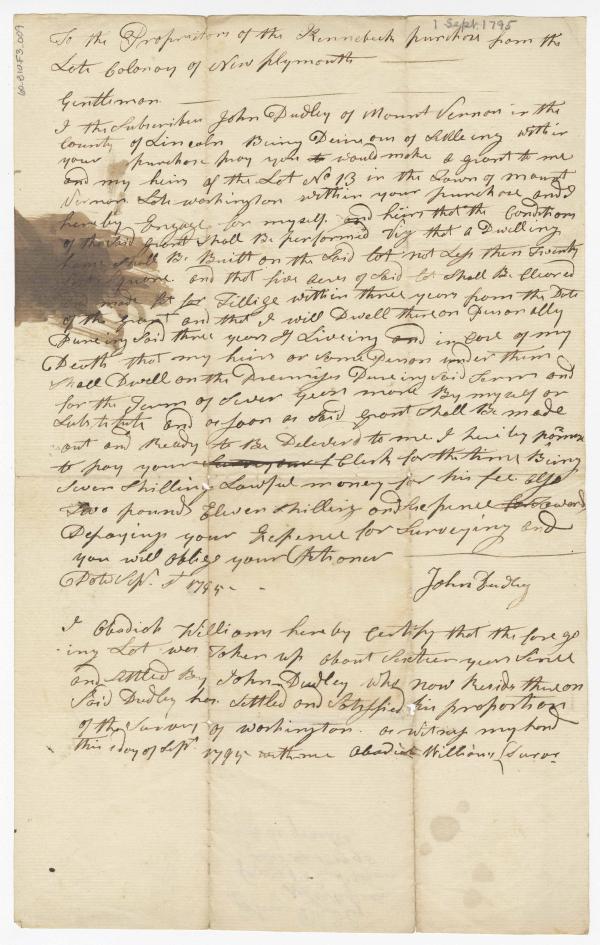 1 Sept. 1795
To the Proprietors of the Kennebeck purchase from the
Late Colonoy of New plymouth
Gentleman
I the Subscriber John Dudley of Mount Vernon in the
County of Lincoln Being Deireous of Settleing within
your purchase pray you to would make a grant to me
and my heirs of the Lot No 13 in the Town of mount
Vernon Late washington within your purchase and I
hereby Engage for myself and heirs that the Conditions
of the said grant Shall Be performed Viz that a Dwelling
house Shall Be Built on the Said Lot not Less then Twenty
feet square and that five acres of Said Lot Shall Be Cleared
and made fit for Tillige within three years from the Date
of the grant and that I will Dwell thereon Personally
Dureing Said three years If Liveing and in Case of my
Death that my heirs or Some Person under them
Shall Dwell on the Premises Dureing Said Term and
for the Term of Seven years more By myself or
Substitute and as soon as Said grant Shall Be made
out and Ready to Be Deliverd to me I hereby promise
to pay your Clerk for the time Being
Seven Shilling Lawful money for his fee also
Two pounds Eleven Shilling and Sixpence towards
Defraying your Expence for Surveying and
you will oblige your Petioner
Date Sepr. 1 1795 -
John Dudley
I Obadiah Williams hereby Certify that the fore go
ing Lot was Taken up about Sixteen years Since
and Settled By John Dudley who now Resids thereon
Said Dudley has Settled and Satisfied his proportion
of the Survey of washington as witness my hand
this 1 day of Sept. 1795 Obadiah Williams
60-810F3.009